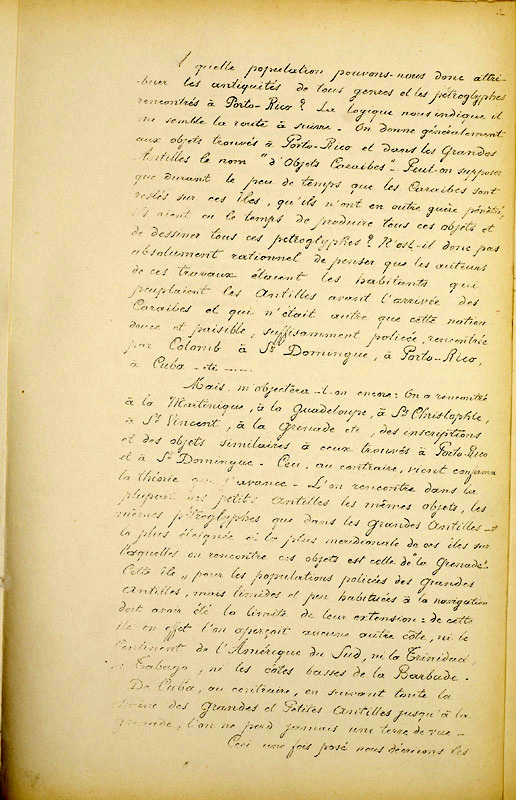 A quelle population pouvons-nous donc attri-
-buer les antiquités de tous genres et les pétroglyphes
rencontrés à Porto-Rico? La logique nous indique il
me semble la route à suivre. On donne généralement
aux objets trouvés à Porto-Rico et dans les Grandes
Antilles le nom "d'Objets Caraïbes". Peut-on supposer
que durant le peu de temps que les Caraïbes sont
restés sur ces îles, qu'ils n'ont en outre guère pénétré,
ils aient eu le temps de produire tous ces objets et
de dessiner tous ces pétroglyphes? N'est-il donc pas
absolument rationnel de penser que les auteurs
de ces travaux étaient les habitants qui
peuplaient les Antilles avant l'arrivée des
Caraïbes et qui n'était autre que cette nation
douce et paisible, suffisamment policée, rencontrée
par Colomb à St Domingue, à Porto-Rico,
à Cuba etc
Mais, m'objectera-t-on encore: On a rencontré
à la Martinique, à la Guadeloupe, à St Christophle,
à St Vincent, à la Grenade etc, des inscriptions
et des objets similaires à ceux trouvés à Porto-Rico
et à St Domingue. Ceci, au contraire, vient confirmer
la théorie que j'avance. L'on rencontre dans la
plupart des petites Antilles les mêmes objets, les
mêmes pétroglyphes que dans les Grandes Antilles et
la plus éloignée et la plus méridionale de ces îles sur
lesquelles on rencontre ces objets est celle de "la Grenade".
Cette île, pour les populations policées des Grandes
Antilles, mais timides et peu habituées à la navigation
doit avoir été la limite de leur extension: de cette
île en effet l'on aperçoit aucune autre côte, ni le
Continent de l'Amérique du Sud, ni la Trinidad,
ni Tabago, ni les côtes basses de la Barbade.
De Cuba, au contraire, en suivant toute la
chaîne des Grandes et Petites Antilles jusqu'à la
Grenade, l'on ne perd jamais une terre de vue.
Ceci une fois posé nous décrirons les